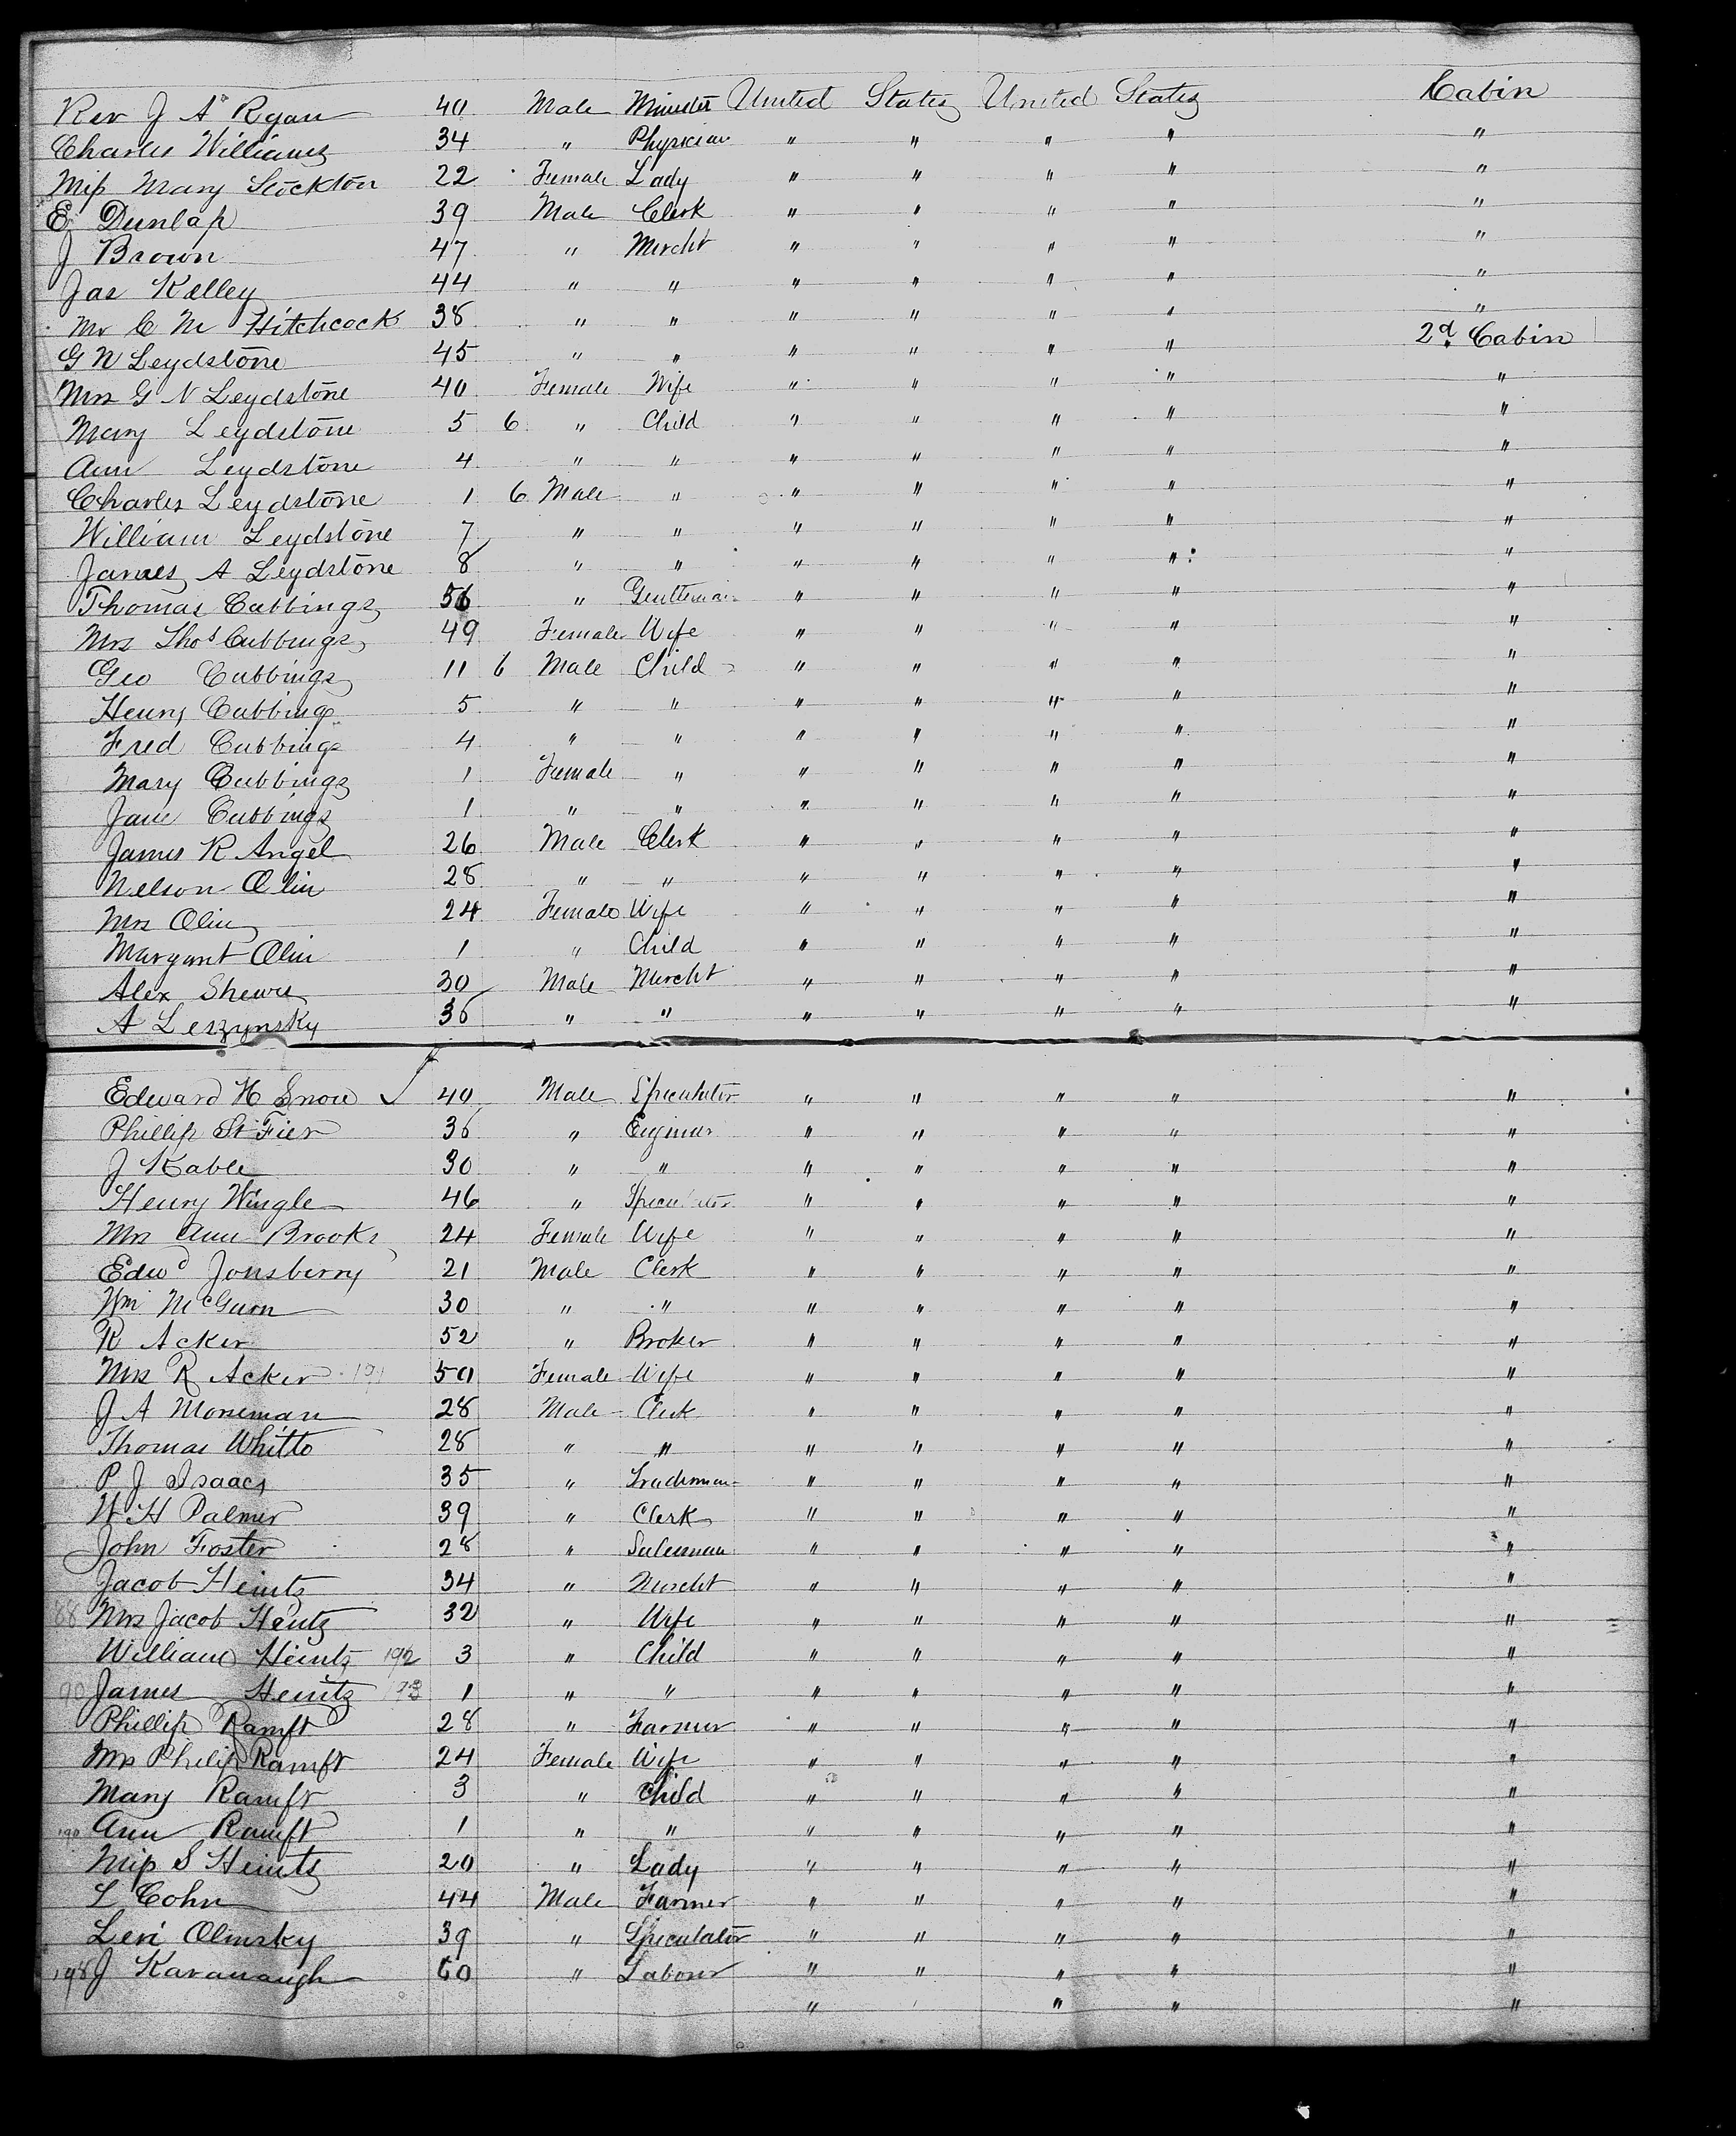 Rev J A Ryan 40 Male Minister United States United States Cabin
Charles Williams 34 " Physician " " " " "
Miss Mary Stockton 22 Female Lady " " " " "
E Dunlap 39 Male Clerk " " " " "
J Brown 47 " Mercht " " " " "
Jas Kelley 44 " " " " " " "
Mr C M Hitchcock 38 " " " " " " "
G N Leydstone 45 " " " " " " 2d Cabin
Mrs G N Leydstone 40 Female Wife " " " " "
Mary Leydstone 5 6 " Child " " " " "
Ann Leydstone 4 " " " " " " "
Charles Leydstone 1 6 Male " " " " " "
William Leydstone 7 " " " " " " "
James A Leydstone 8 " " " " " " "
Thomas Cubbings 56 " Gentleman " " " " "
Mrs Thos Cubbings 49 Female Wife " " " " "
Geo Cubbings 11 6 Male Child " " " " "
Henry Cubbings 5 " " " " " " "
Fred Cubbings 4 " " " " " " "
Mary Cubbings 1 Female " " " " " "
Jane Cubbings 1 " " " " " " "
James R Angel 26 Male Clerk " " " " "
Nelson Olin 28 " " " " " " "
Mrs Olin 24 Female Wife " " " " "
Margant Olin 1 " Child " " " " "
Alex Shewe 30 Male Mercht " " " " "
A Leszynsky 36 " " " " " " "
Edward H Snow ✓ 40 Male Speculator " " " " "
Phillip St Fier 36 " Enginer " " " " "
J Kable 30 " " " " " " "
Henry Wingle 46 " Speculator " " " " "
Mrs Ann Brooks 24 Female Wife " " " " "
Edwd Jonsberry 21 Male Clerk " " " " "
Wm McGurn 30 " " " " " " "
R Acker 52 " Broker " " " " "
Mrs R Acker 191 50 Female Wife " " " " "
J A Moneman 28 Male Clerk " " " " "
Thomas Whitto 28 " " " " " " "
P J Isaacs 35 " Tradesman " " " " "
W H Palmer 39 " Clerk " " " " "
John Foster 28 " Salesman " " " " "
Jacob Heintz 34 " Mercht " " " " "
88 Mrs Jacob Heintz 32 " Wife " " " " "
William Heintz 192 3 " Child " " " " "
90 James Heintz 193 1 " " " " " " "
Phillip Ramft 28 " Farmer " " " " "
Mrs Philip Ramft 24 Female Wife " " " " "
Mary Ramft 3 " Child " " " " "
Ann Ramft 1 " " " " " " "
Miss S Heintz 20 " Lady " " " " "
L Cohn 44 Male Farmer " " " " "
Levi Olinsky 39 " Speculator " " " " "
198 J Kavanaugh 60 " Laborer " " " " "
" " " "